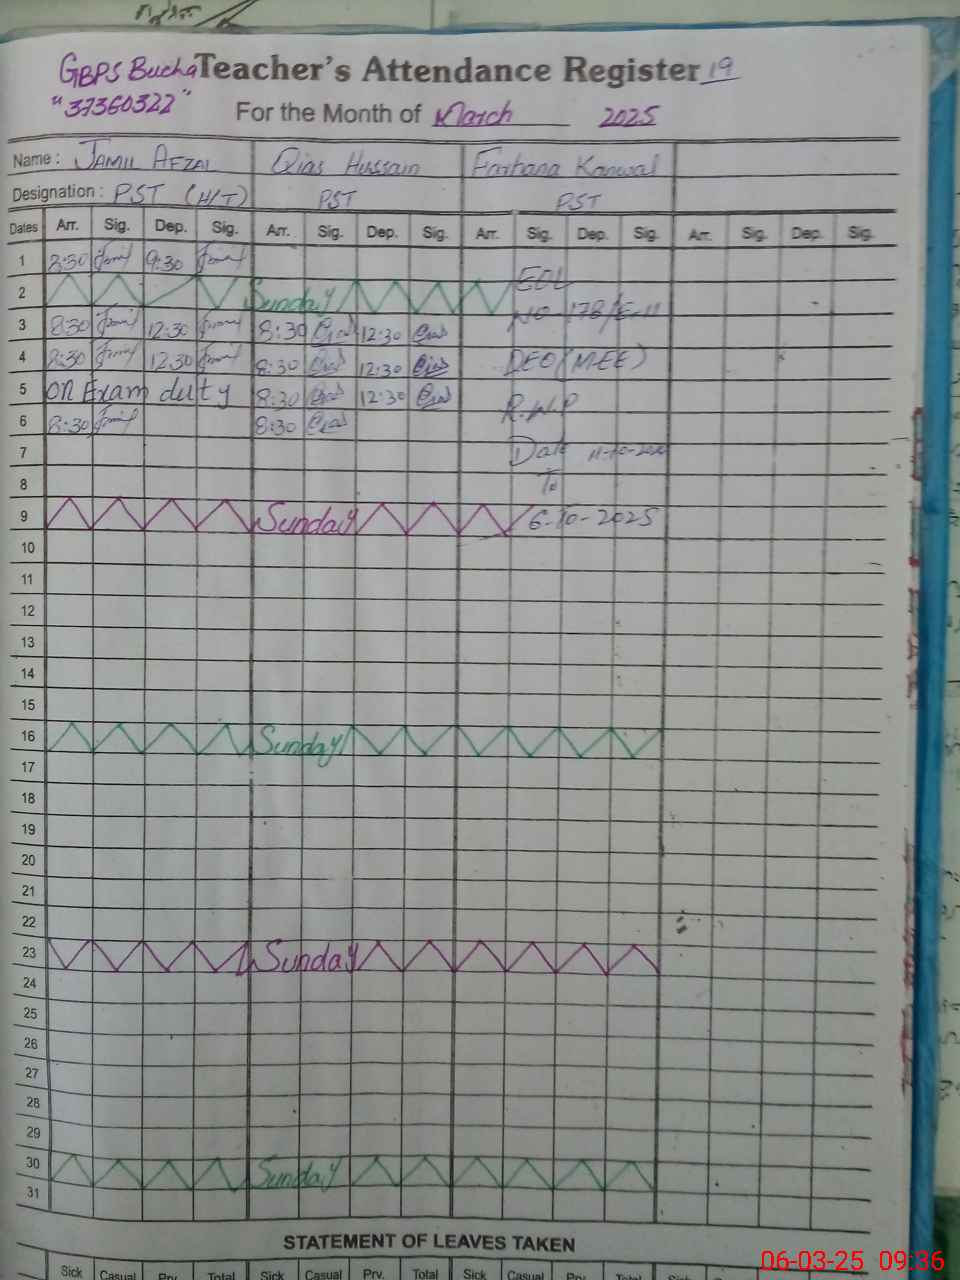 GBPS Bucha Teacher's Attendance Register 19
"37360322" For the Month of March 2025
Name : JAMIL AFZAL Qias Hussain Farhana Kanwal
Designation : PST (H/T) PST PST
Dates Arr. Sig. Dep. Sig. Arr. Sig. Dep. Sig. Arr. Sig. Dep. Sig. Arr. Sig. Dep. Sig.
1 8:30 Jamil 9:30 Jamil EOL
2 Sunday NO 178/E-11
3 8:30 Jamil 12:30 Jamil 8:30 Qias 12:30 Qias
4 8:30 Jamil 12:30 Jamil 8:30 Qias 12:30 Qias DEO (M-EE)
5 on Exam duty 8:30 Qias 12:30 Qias R.W.P
6 8:30 Jamil 8:30 Qias
7 Date
8 To
9 Sunday 6-10-2025
10
11
12
13
14
15
16 Sunday
17
18
19
20
21
22
23 Sunday
24
25
26
27
28
29
30 Sunday
31
STATEMENT OF LEAVES TAKEN
Sick Casual Prv. Total Sick Casual Prv. Total Sick Casual Prv. Total Sick
06-03-25 09:36